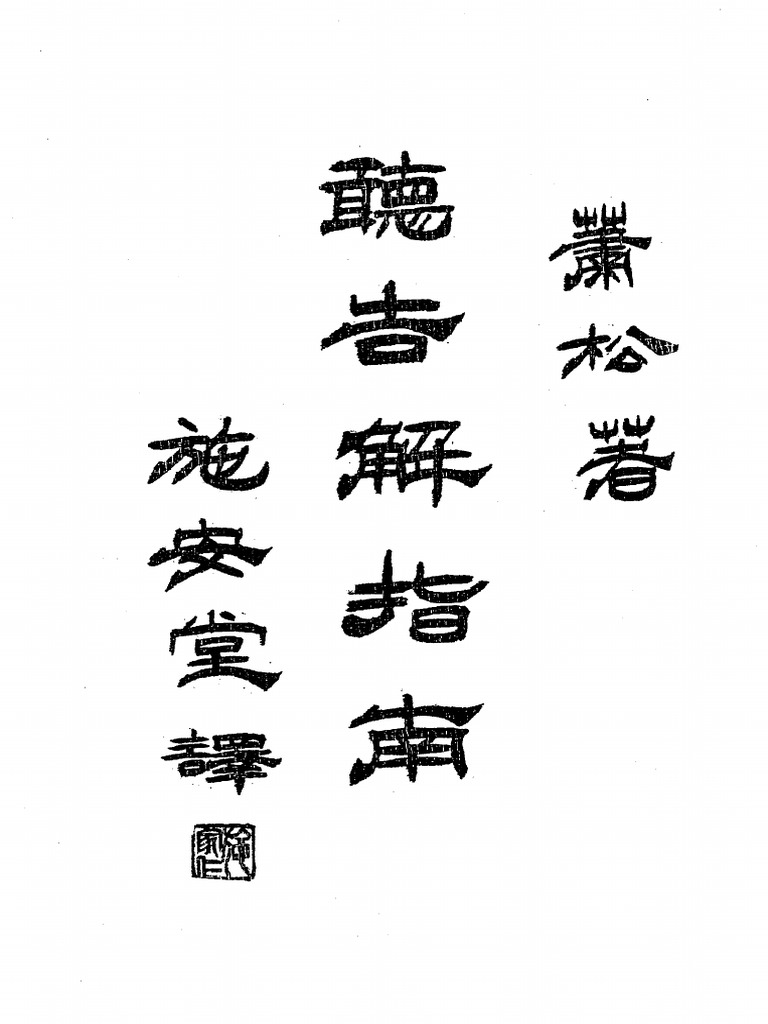 蕭松著
聽告解指南
施安堂譯